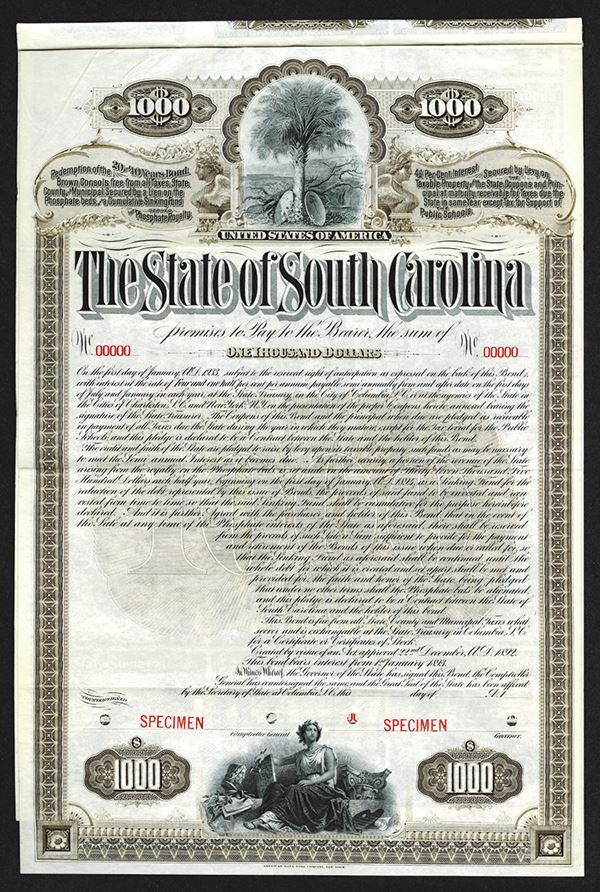 1000
1000
20 or 40 Years Bond.
Redemption of the
Brown Consols free from all Taxes, State,
County and Municipal Secured by a Lien on the
Phosphate beds, and Cumulative Sinking fund
Phosphate Royalty.
4½ Per Cent. Interest Secured by Levy on
Taxable Property of the State Coupons and Prin-
cipal at maturity receivable for Taxes due the
State in same Year except Tax for Support of
Public Schools.
UNITED STATES OF AMERICA
The State of South Carolina
promises to Pay to the Bearer, the sum of
No. 00000
No. 00000
ONE THOUSAND DOLLARS
On the first day of January, A.D. 1933, subject to the reserved right of anticipation as expressed on the back of this Bond,
with interest at the rate of Four and one half per cent per annum, payable semi annually from and after date on the first days
of July and January in each year, at the State Treasury, in the City of Columbia, S.C. or at the agencies of the State in
the Cities of Charleston, S.C. and New York, N.Y. On the presentation of the proper Coupons hereto annexed bearing the
signature of the State Treasurer. The Coupons of this Bond and the principal when due are pledged as receivable
in payment of all Taxes due the State during the year in which they mature, except for the Tax levied for the Public
Schools, and this pledge is declared to be a Contract between the State and the holder of this Bond.
The credit and faith of this State are pledged to raise, by levy upon its taxable property, such funds as may be necessary
to meet the Semi annual Interest as it becomes due. As further security, a portion of the revenue of the State
arising from the royalty on the Phosphate beds, is set aside in the amount of Thirty Seven Thousand Five
Hundred Dollars each half year, beginning on the first day of January, A.D. 1895, as a Sinking Fund for the
reduction of the debt represented by this issue of Bonds, the proceeds of said fund to be invested and rein-
vested from time to time, so that the said Sinking Fund shall be cumulative for the purpose hereinbefore
declared. And it is further Agreed with the purchaser and holder of this Bond, that in the event of
the Sale at any time of the Phosphate interests of the State as aforesaid, there shall be reserved
from the proceeds of such Sale a Sum sufficient to provide for the payment
and retirement of the Bonds of this issue when due or called for, so
that the Sinking Fund as aforesaid shall be continued until the
whole debt for which it is created and set apart shall be met and
provided for, the faith and honor of the State being pledged
that under no other terms shall the Phosphate beds be alienated,
and this pledge is declared to be a Contract between the State of
South Carolina and the holder of this bond.
This Bond is free from all State, County and Municipal Taxes what
soever and is exchangeable at the State Treasury in Columbia, S.C.
for a Certificate or Certificates of Stock.
Created by virtue of an Act approved 22nd December, A.D. 1892.
This bond bears interest from 1st January 1893.
In Witness Whereof, the Governor of the State has signed this Bond, the Comptroller
General has countersigned the same and the Great Seal of the State has been affixed
by the Secretary of State at Columbia, S.C. this day of A.D.
COUNTERSIGNED
SPECIMEN
SPECIMEN
Comptroller General
Governor.
$
1000
$
1000
AMERICAN BANK NOTE COMPANY, NEW YORK.